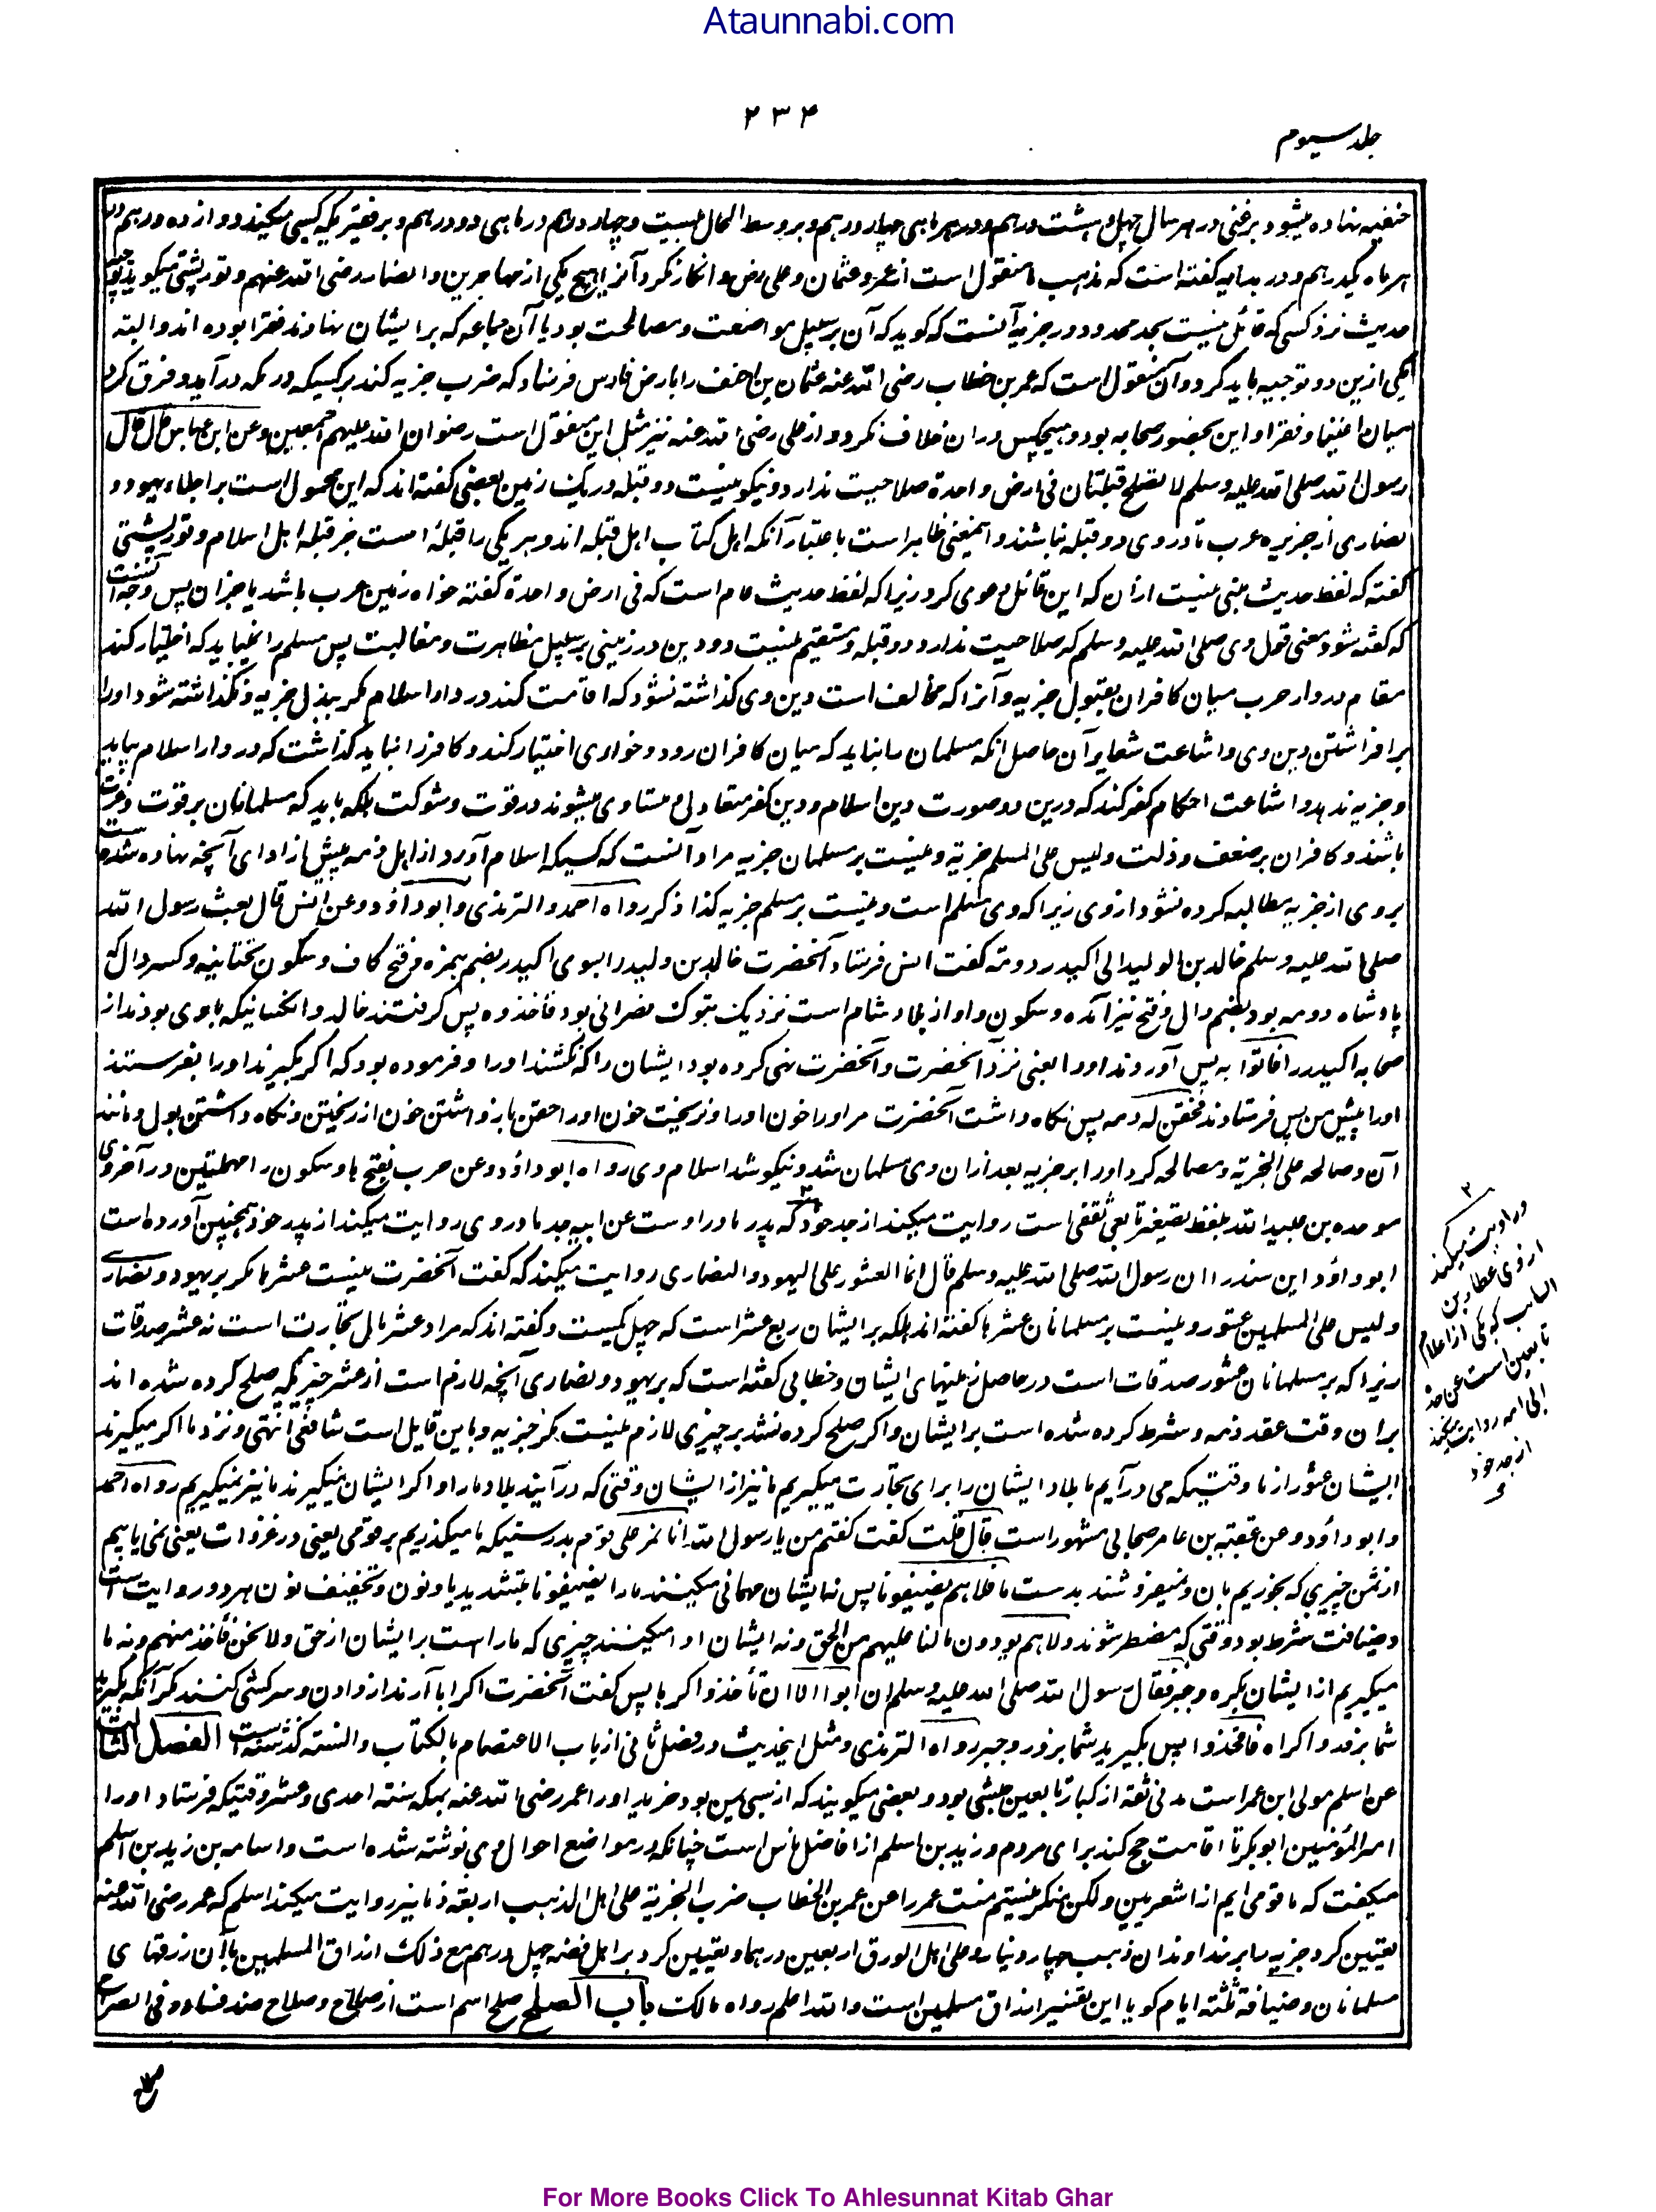 Ataunnabi.com
۲۳۴
جلد سیوم
حنفیه نهاده میشود بر غنی در هر سال چهل و هشت درهم و در هر ماهی چهار درهم و بر وسط الحال بیست و چهار درهم در ماهی دو درهم و بر فقیریکه کسبی میکند دوازده درهم در
هر ماه یکدرهم و در هدایه گفته است که مذهب ما منقول است از عمر و عثمان و علی رض و انکار نکرد آنرا هیچ یکی از مهاجرین و انصار رضی الله عنهم و تورپشتی میگوید
حدیث نزد کسی که قائل نیست بحد محدود در جزیه آنست که گوید که آن بر سبیل مواضعت و مصالحت بود یا آن جماعه که بر ایشان نهادند فقرا بوده اند و البته
یکی ازین دو توجیه باید کرد و آن منقول است که عمر بن خطاب رضی الله عنه عثمان بن احنف را بارض فارس فرستاد که ضرب جزیه کند بر کسیکه در آید و فرق کرد
میان اغنیا و فقرا و این بحضور صحابه بود و هیچکس در ان خلاف نکرد و از علی رضی الله عنه نیز مثل این منقول است رضوان الله علیهم اجمعین وعن ابن عباس قال قال
رسول الله صلی الله علیه وسلم لا تصلح قبلتان فی ارض واحدة صلاحیت ندارد و نیکو نیست دو قبله در یک زمین بعضی گفته اند که این محمول است بر اجلاء یهود و
نصاری از جزیره عرب تا در وی دو قبله نباشند و اینمعنی ظاهر است باعتبار آنکه اهل کتاب اهل قبله اند و هر یکی را قبله است جز قبله اهل اسلام و تورپشتی
گفته که لفظ حدیث مبنی نیست از ان که این قائل دعوی کرد زیرا که لفظ حدیث عام است که فی ارض واحدة گفته خواه زمین عرب باشد یا جز ان پس وجه آنست
که گفته شود معنی قول وی صلی الله علیه وسلم که صلاحیت ندارد دو قبله و مستقیم نیست دو دین در زمینی بر سبیل مظاهرت و مغالبت پس مسلم را نمیباید که اختیار کند
مقام در دار حرب میان کافران بقبول جزیه و آنرا که مخالف است دین وی گذاشته نشود که اقامت کند در دار اسلام مگر ببذل جزیه و نگذاشته شود او را
بر افراشتن دین وی و اشاعت شعایر آن حاصل انکه مسلمان را نباید که میان کافران رود و خواری اختیار کند و کافر را نباید گذاشت که در دار اسلام بیاید
و جزیه ندهد و اشاعت احکام کفر کند که درین دو صورت دین اسلام و دین کفر متعادل و متساوی میشوند در قوت و شوکت بلکه باید که مسلمانان بر قوت و عزت
باشند و کافران بر ضعف و ذلت ولیس علی المسلم جزیة و نیست بر مسلمان جزیه مراد آنست که کسیکه اسلام آورد از اهل ذمه پیش از ادای آنچه نهاده شده است
بر وی از جزیه مطالبه کرده نشود از وی زیرا که وی مسلم است و نیست بر مسلم جزیه کذا ذکر رواه احمد والترمذی وابوداؤد وعن انس قال بعث رسول الله
صلی الله علیه وسلم خالد بن الولید الی اکیدر دومة گفت انس فرستاد آنحضرت خالد بن ولید را بسوی اکیدر بضم همزه و فتح کاف و سکون تحتانیه و کسر دال که
پادشاه دومه بود بضم دال و فتح نیز آمده و سکون واو از بلاد شام است نزدیک تبوک نصرانی بود فاخذوه پس گرفتند خالد و انکسانیکه باوی بودند از
صحابه اکیدر را فاتوا به پس آوردند او را یعنی نزد آنحضرت و آنحضرت نهی کرده بود ایشان را که نکشند او را و فرموده بود که اگر بگیرند او را بفرستند
او را پیش من پس فرستادند فحقن له دمه پس نگاه داشت آنحضرت مر او را خون او را و نریخت خون او را حقن باز داشتن خون از ریختن و نگاه داشتن بول و مانند
آن وصالحه علی الجزیة و مصالحه کرد او را بر جزیه بعد از ان وی مسلمان شد و نیکو شد اسلام وی رواه ابوداؤد وعن حرب بفتح حا و سکون را مهملتین در آخر وی
موحده بن عبید الله بلفظ تصغیر تابعی ثقفی است روایت میکند از جد خود که پدر مادر اوست عن ابیه جد مادر وی روایت میکند از پدر خود همچنین آورده است
ابوداؤد این سند را ان رسول الله صلی الله علیه وسلم قال انما العشور علی الیهود والنصاری روایت میکند که گفت آنحضرت نیست عشرها مگر بر یهود و نصاری
ولیس علی المسلمین عشور و نیست بر مسلمانان عشرها گفته اند بلکه بر ایشان ربع عشر است که چهل یکیست و گفته اند که مراد عشر مال تجارت است نه عشر صدقات
زیرا که بر مسلمانان عشور صدقات است در حاصل زمینهای ایشان و خطابی گفته است که بر یهود و نصاری آنچه لازم است از عشر چیزیکه صلح کرده شده اند
بران وقت عقد ذمه و شرط کرده شده است بر ایشان و اگر صلح کرده نشد بر چیزی لازم نیست مگر جزیه و باین قایل است شافعی انتهی و نزد ما اگر میگیرند
ایشان عشور از ما وقتیکه می درآیم ما بلاد ایشان را برای تجارت میگیریم ما نیز از ایشان وقتی که درآیند بلاد ما را و اگر ایشان نمیگیرند ما نیز نمیگیریم رواه احمد
وابوداؤد وعن عقبة بن عامر صحابی مشهور است قال قلت گفت گفتم من یا رسول الله انا نمر علی قوم بدرستیکه ما میگذریم بر قومی یعنی در غزوات یعنی نمی یابیم
از ثمن چیزی که بخوریم بان و نمیفروشند بدست ما فلا هم یضیفونا پس نه ایشان مهمانی میکنند ما را یضیفونا بتشدید یا و نون و تخفیف نون هر دو روایت است
و ضیافت شرط بود وقتی که مضطر شوند ولا هم یودون ما لنا علیهم من الحق ونه ایشان ادا میکنند چیزی که ما را است بر ایشان از حق ولا نحن ناخذ منهم ونه ما
میگیریم از ایشان بکره و جبر فقال رسول الله صلی الله علیه وسلم ان ابوا الا ان تأخذوا کرها پس گفت آنحضرت اگر ابا آرند از دادن و سرکشی کنند مگر آنکه بگیرید
شما بزور و اکراه فخذوا پس بگیرید شما بزور و جبر رواه الترمذی و مثل اینحدیث در فصل ثانی از باب الاعتصام بالکتاب والسنة گذشته است الفصل الثالث
عن اسلم مولی ابن عمر است مدنی ثقه از کبار تابعین حبشی بود و بعضی میگویند که از سبی یمن بود خرید او را عمر رضی الله عنه بمکه سنه احدی و عشر وقتیکه فرستاد او را
امیر المؤمنین ابوبکر تا اقامت حج کند برای مردم و زید بن اسلم از افاضل ناس است چنانکه در مواضع احوال وی نوشته شده است و اسامه بن زید بن اسلم
میگفت که ما قومی ایم از اشعریین ولکن منکر نیستیم منت عمر را عن عمر بن الخطاب ضرب الجزیة علی اهل الذهب اربعة دنانیر روایت میکند اسلم که عمر رضی الله عنه
تعیین کرد جزیه را بر خداوندان ذهب چهار دینار وعلی اهل الورق اربعین درهما و تعیین کرد بر اهل فضه چهل درهم مع ذلک ارزاق المسلمین با آن رزقهای
مسلمانان وضیافة ثلثة ایام گویا این تفسیر ارزاق مسلمین است والله اعلم رواه مالک باب الصلح صلح اسم است از صلاح و صلاح ضد فساد و فی الصراح
و روایت میکند
از وی عطاء بن
السائب که یکی از اعلام
تابعین است عن جده
ابی امه روایت میکند
از جد خود
For More Books Click To Ahlesunnat Kitab Ghar